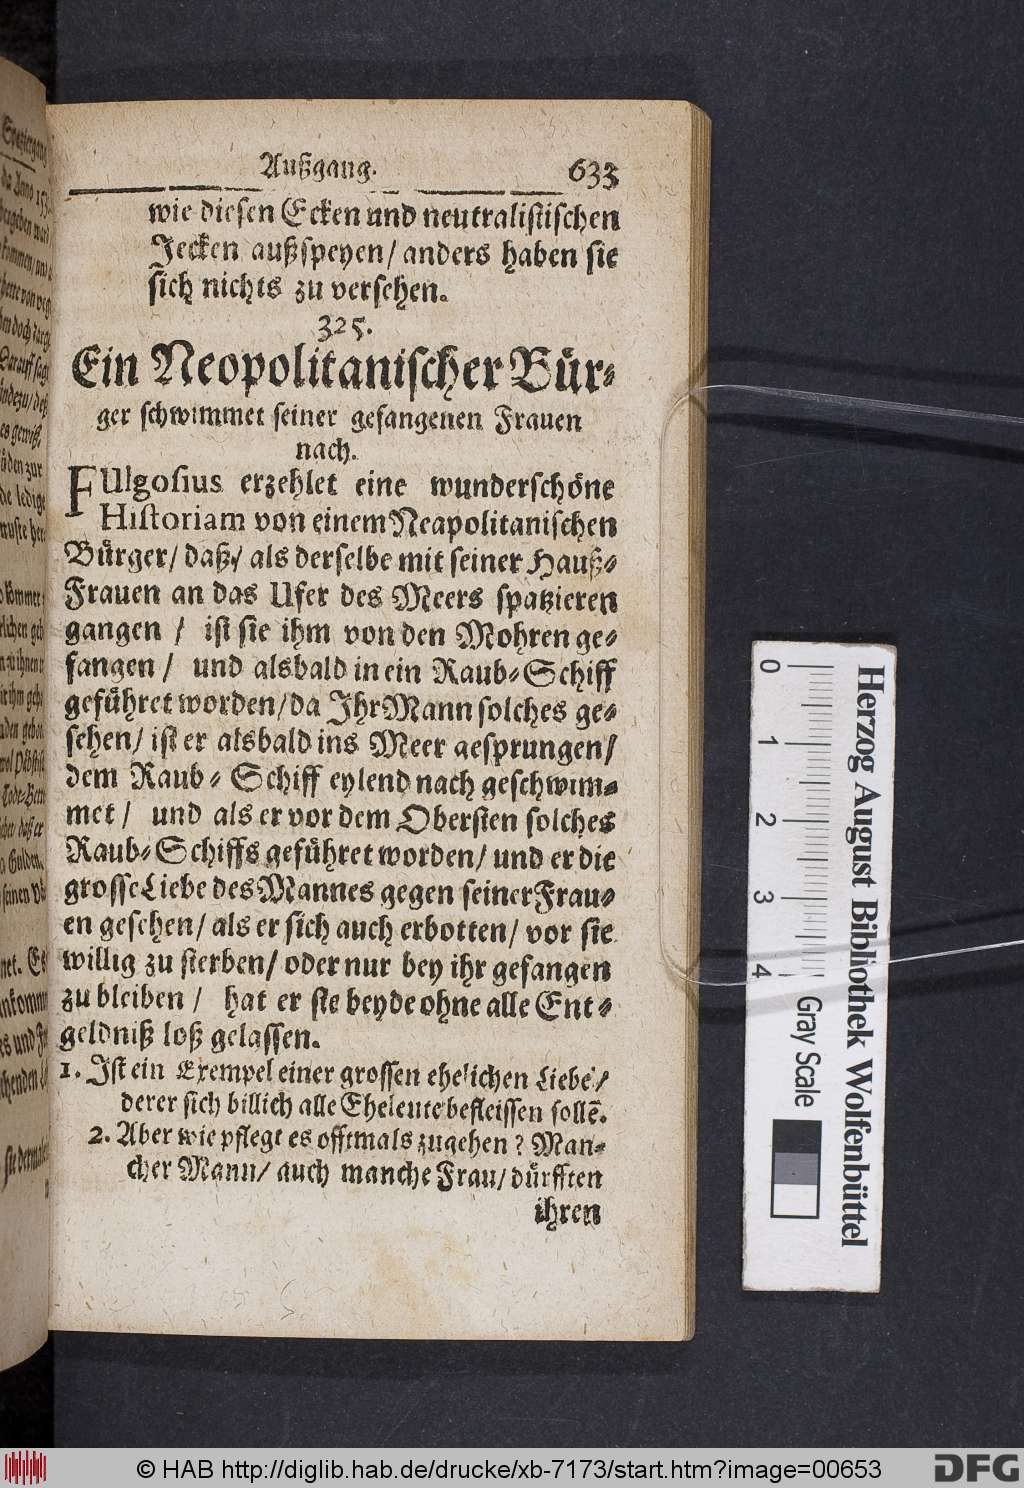 Außgang. 633
wie diesen Ecken und neutralistischen
Jecken außspeyen/ anders haben sie
sich nichts zu versehen.
325.
Ein Neopolitanischer Bür-
ger schwimmet seiner gefangenen Frauen
nach.
FUlgosius erzehlet eine wunderschöne
Historiam von einem Neapolitanischen
Bürger/ daß/ als derselbe mit seiner Hauß-
Frauen an das Ufer des Meers spatzieren
gangen / ist sie ihm von den Mohren ge-
fangen / und alsbald in ein Raub-Schiff
geführet worden/ da Ihr Mann solches ge-
sehen/ ist er alsbald ins Meer gesprungen/
dem Raub-Schiff eylend nach geschwim-
met / und als er vor dem Obersten solches
Raub-Schiffs geführet worden/ und er die
grosse Liebe des Mannes gegen seiner Frau-
en gesehen/ als er sich auch erbotten/ vor sie
willig zu sterben/ oder nur bey ihr gefangen
zu bleiben / hat er sie beyde ohne alle Ent-
geldniß loß gelassen.
1. Ist ein Exempel einer grossen ehelichen Liebe/
derer sich billich alle Eheleute befleissen sollē.
2. Aber wie pflegt es offtmals zugehen? Man-
cher Mann/ auch manche Frau/ dürfften
ihren
0 1 2 3 4
Herzog August Bibliothek Wolfenbüttel
Gray Scale
© HAB http://diglib.hab.de/drucke/xb-7173/start.htm?image=00653
DFG